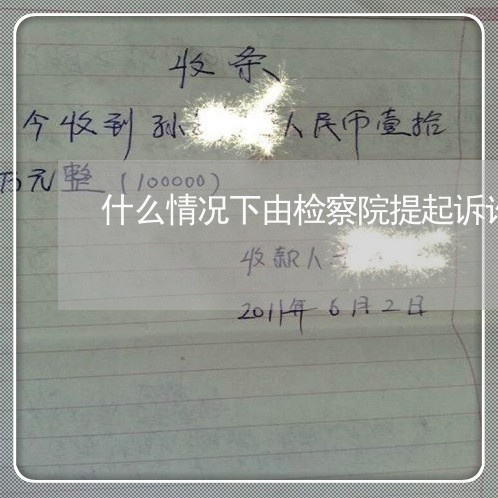 收条
今收到孙 人民币壹拾
万元整（100000）
什么情况下由检察院提起诉讼
收款人
2011年6月2日